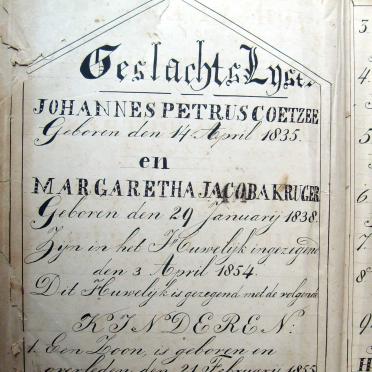 Geslachts Lyst.
JOHANNES PETRUS COETZEE
Geboren den 14 April 1835.
en
MARGARETHA JACOBA KRUGER
Geboren den 29 Januarij 1838.
Zijn in het Huwelijk ingezegend
den 3 April 1854.
Dit Huwelijk is gezegend met de volgende
KINDEREN:
1. Een Zoon, is geboren en
overleden, den 21 Februarij 1855
3
4
5
6
7
8
9
H